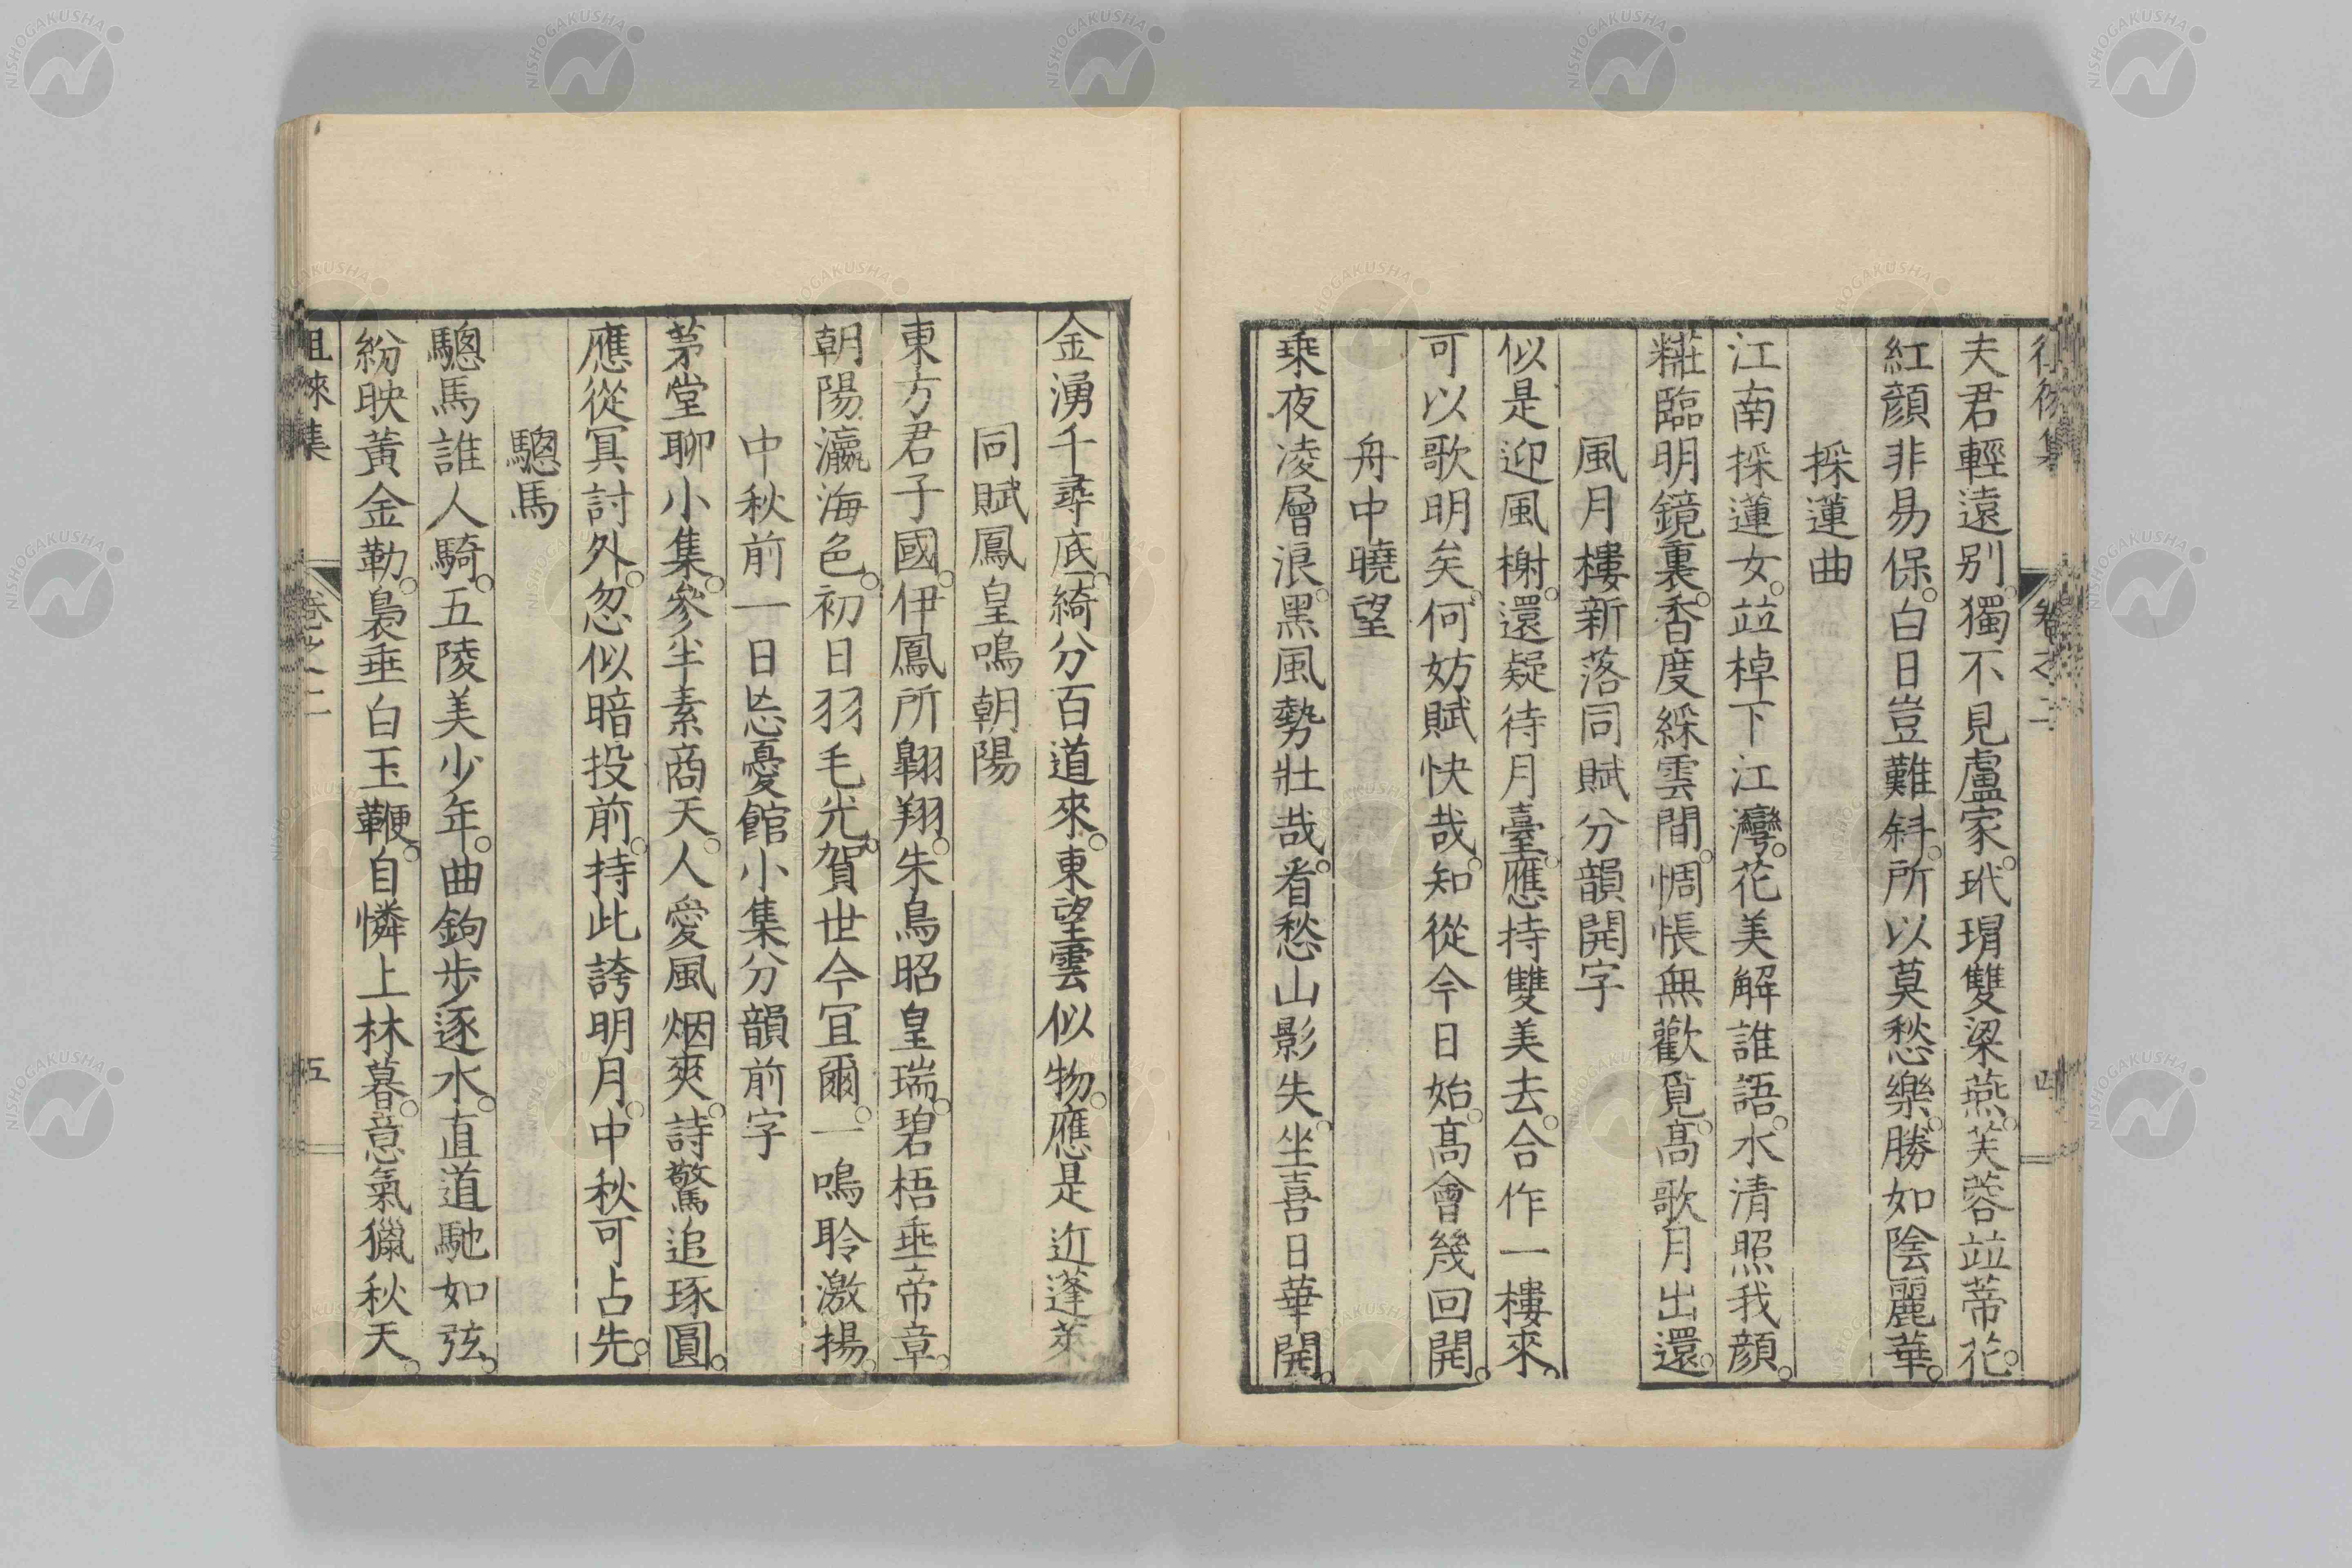 徂徠集 卷之二 四
夫君輕遠別。獨不見盧家。玳瑁雙梁燕。芙蓉竝蒂花。
紅顏非易保。白日豈難斜。所以莫愁樂。勝如陰麗華。
採蓮曲
江南採蓮女。竝棹下江灣。花美解誰語。水清照我顏。
糚臨明鏡裏。香度綵雲間。惆悵無歡覓。髙歌月出還。
風月樓新落同賦分韻開字
似是迎風榭。還疑待月臺。應持雙美去。合作一樓來。
可以歌明矣。何妨賦快哉。知從今日始。髙會幾回開。
舟中曉望
乗夜凌層浪。黑風勢壯哉。看愁山影失。坐喜日華開。
金湧千尋底。綺分百道來。東望雲似物。應是近蓬萊
同賦鳳皇鳴朝陽
東方君子國。伊鳳所翺翔。朱鳥昭皇瑞。碧梧垂帝章。
朝陽瀛海色。初日羽毛光。賀世今冝爾。一鳴聆激揚。
中秋前一日㤀憂館小集分韻前字
茅堂聊小集。參半素商天。人愛風烟爽。詩驚追琢圓。
應從冥討外。忽似暗投前。持此誇明月。中秋可占先。
驄馬
驄馬誰人騎。五陵美少年。曲鉤步逐水。直道馳如弦。
紛映黃金勒。裊垂白玉鞭。自憐上林暮。意氣獵秋天。
徂徠集 卷之二 五
NISHOGAKUSHA